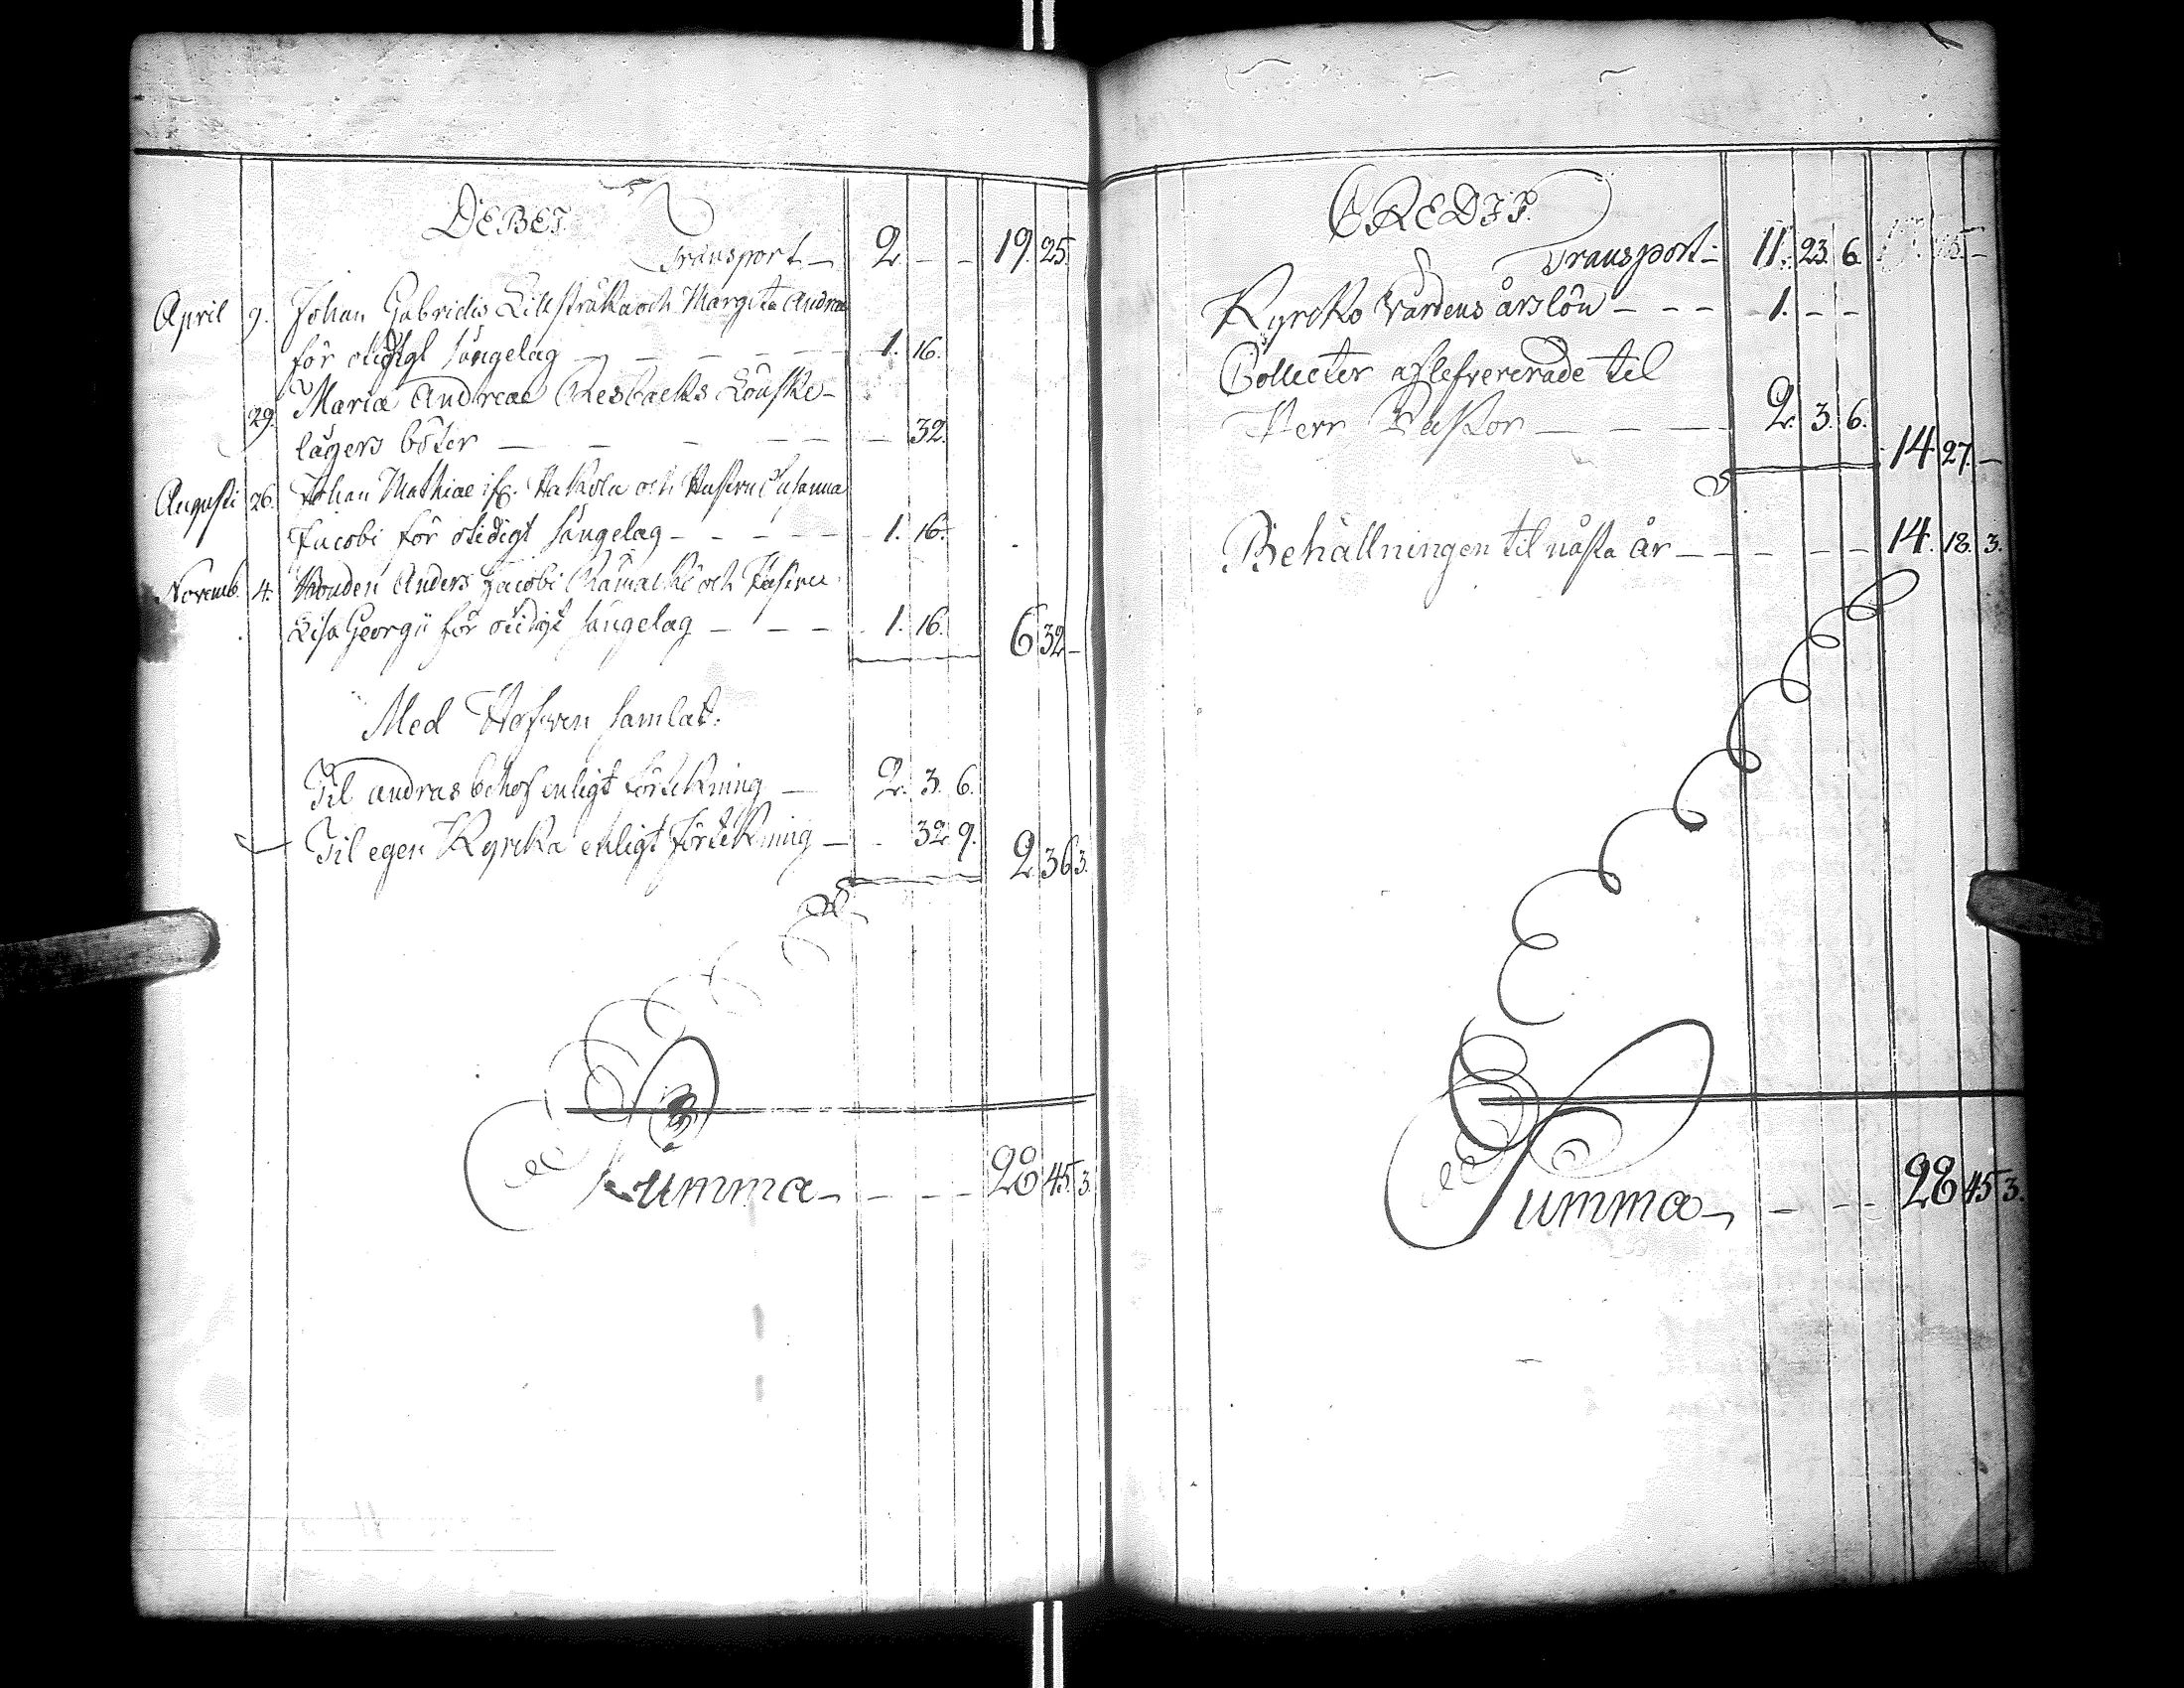 DEBET.
Transport — 2. — — 19. 25.
April 9. Johan Gabrielis och Margeta Andreæ
för otidigt sängelag — — — — 1. 16.
29. Maria Andreae Lönske-
lägers böter — — — — — 32.
Augusti 26. Johan Mathiae och Hustru Susanna
Jacobi för otidigt sängelag — — — — 1. 16.
Novemb. 4. Bonden Anders Jacobi och Hustru
Lisa Georgii för otidigt sängelag — — — 1. 16. 6 32 —
Med Hofwen samlat.
Til andras behof enligt förtekning — 2. 3. 6.
Til egen Kyrcka enligt förtekning — 32. 9. 2 36 3.
Summa — — — — 28 45 3.
CREDIT.
Transport — 11. 23. 6.
Kyrcko Värdens årslön — — — 1. — —
Collecter aflefvererade til
Herr Pastor — — — 2. 3. 6.
14. 27. —
Behållningen til nästa år — — — — 14. 18. 3.
Summa — — — — 28 45 3.